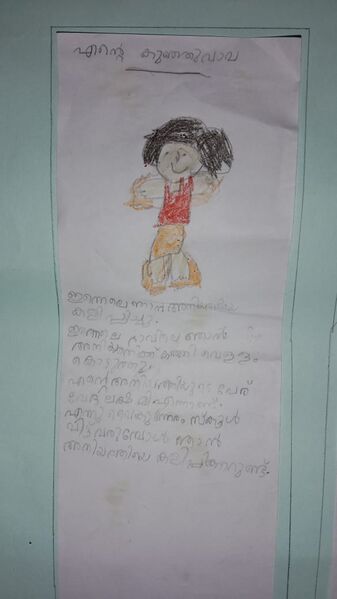 എൻ്റെ കുഞ്ഞുവാവ
ഇന്നലെ ഞാൻ അനിയത്തിയെ
കളിപ്പിച്ചു.
ഇന്നലെ രാവിലെ ഞാൻ
അനിയത്തിക്ക് കഞ്ഞി വെള്ളം
കൊടുത്തു.
എൻ്റെ അനിയത്തിയുടെ പേര്
വേദ ലക്ഷ്മി എന്നാണ്.
എന്നും വൈകുന്നേരം സ്കൂൾ
വിട്ട് വരുമ്പോൾ ഞാൻ
അനിയത്തിയെ കളിപ്പിക്കാറുണ്ട്.